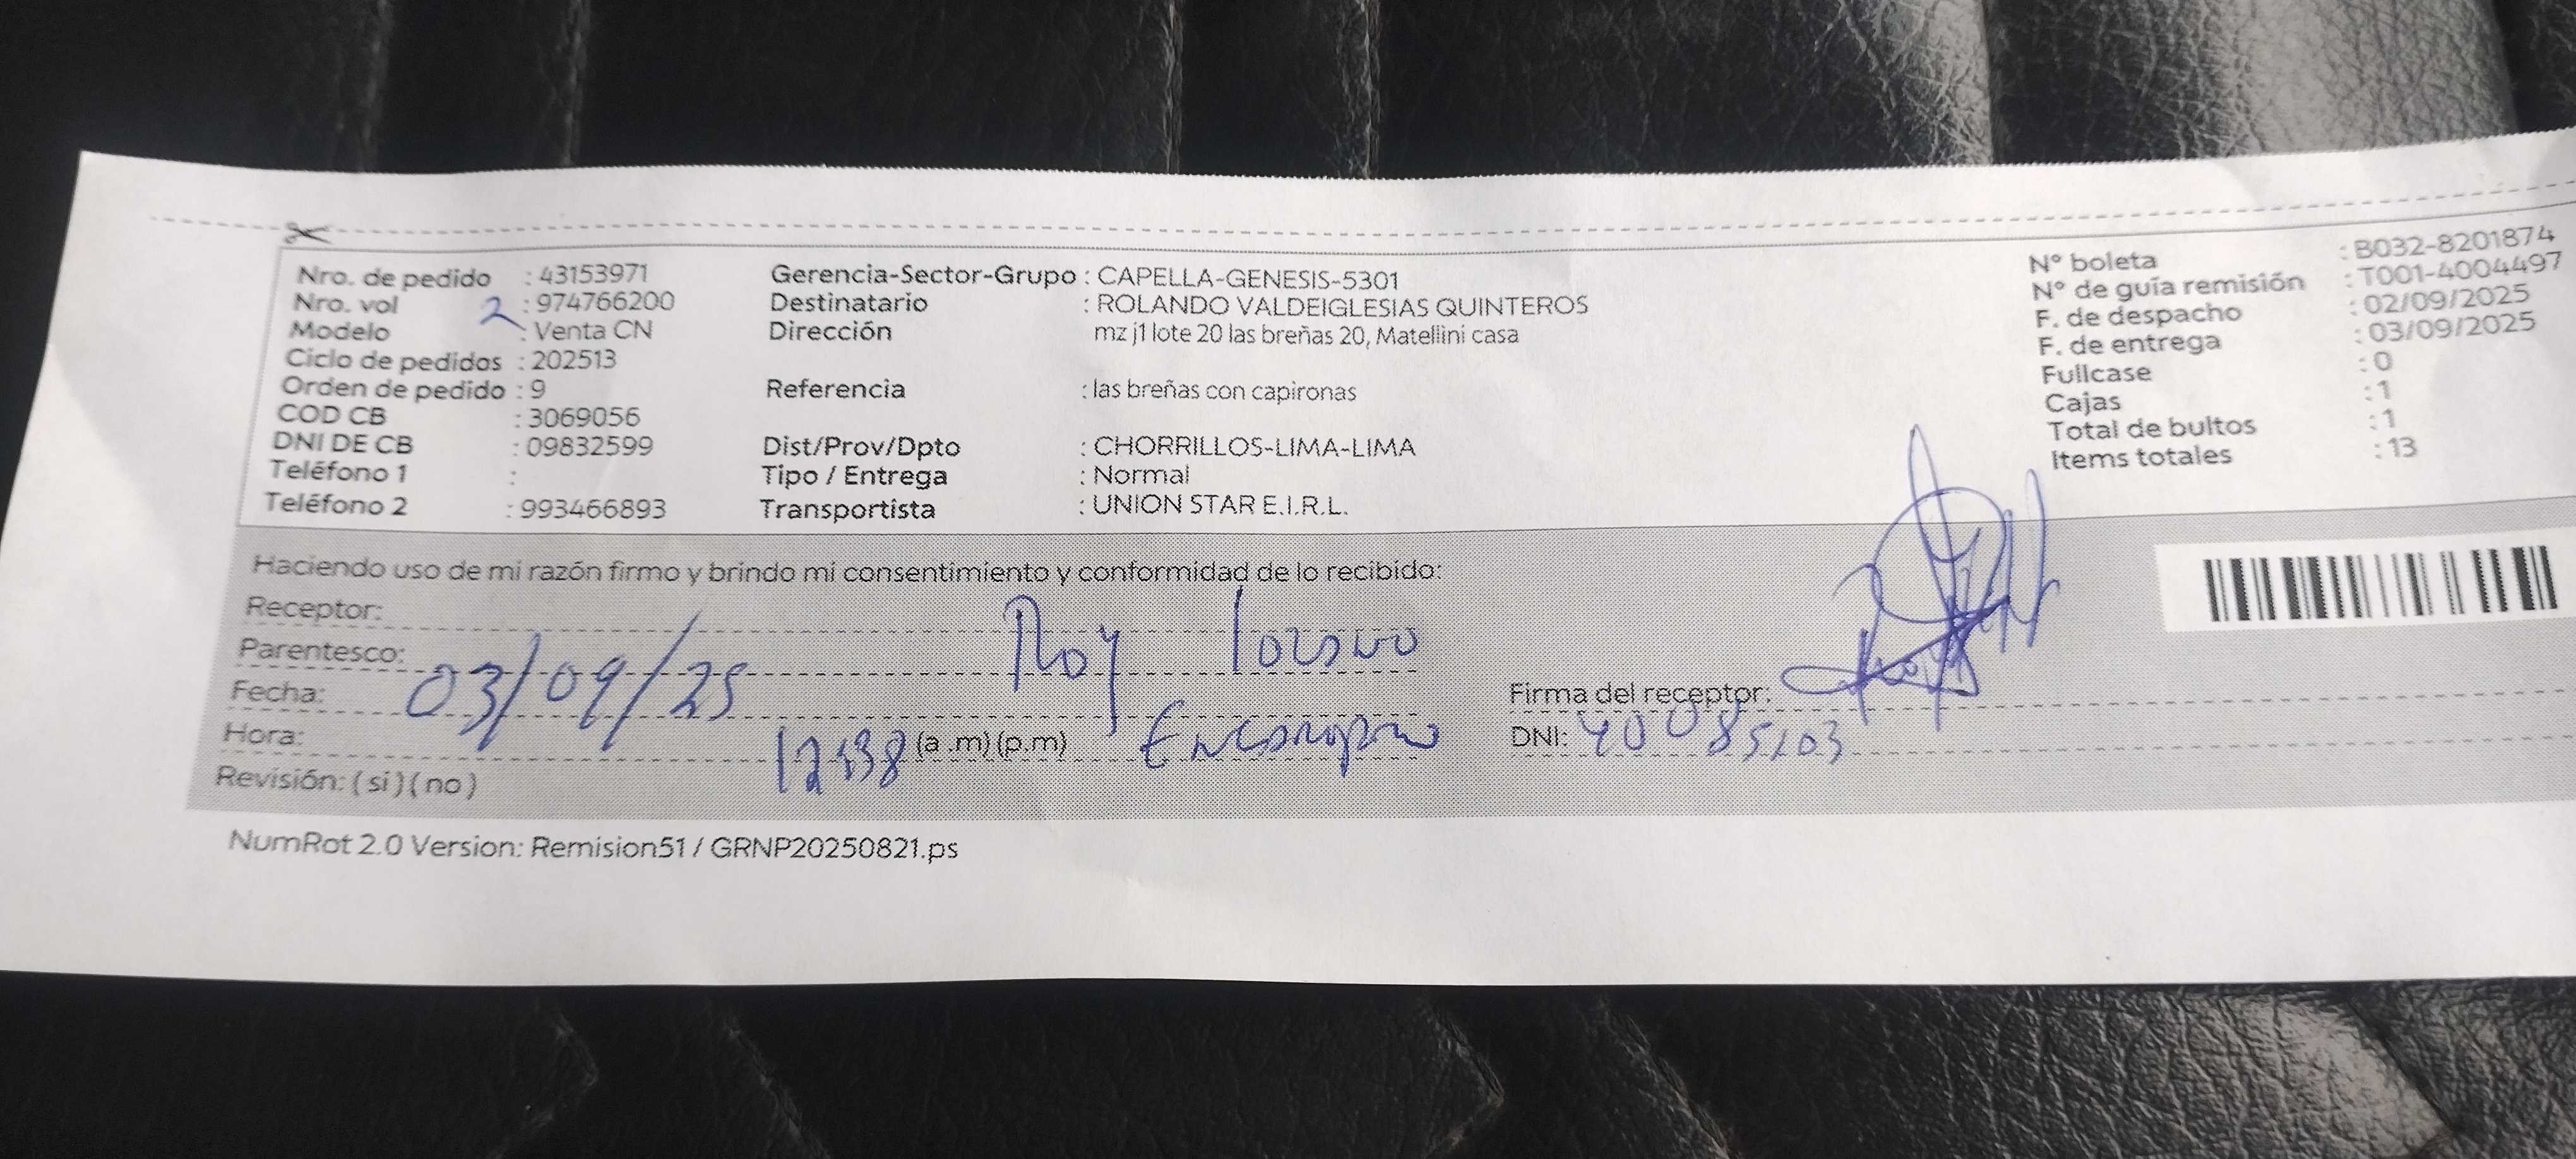 Nro. de pedido : 43153971
Nro. vol : 974766200
2
Modelo : Venta CN
Ciclo de pedidos : 202513
Orden de pedido : 9
COD CB : 3069056
DNI DE CB : 09832599
Teléfono 1 :
Teléfono 2 : 993466893
Gerencia-Sector-Grupo : CAPELLA-GENESIS-5301
Destinatario : ROLANDO VALDEIGLESIAS QUINTEROS
Dirección mz j1 lote 20 las breñas 20, Matellini casa
Referencia : las breñas con capironas
Dist/Prov/Dpto : CHORRILLOS-LIMA-LIMA
Tipo / Entrega : Normal
Transportista : UNION STAR E.I.R.L.
N° boleta : B032-8201874
N° de guía remisión : T001-4004497
F. de despacho : 02/09/2025
F. de entrega : 03/09/2025
Fullcase : 0
Cajas : 1
Total de bultos : 1
Items totales : 13
Haciendo uso de mi razón firmo y brindo mi consentimiento y conformidad de lo recibido:
Receptor:
Roy
Parentesco:
Fecha: 03/09/25
Hora: (a .m) (p.m)
Revisión: ( si ) ( no )
Firma del receptor:
DNI:
NumRot 2.0 Version: Remision51 / GRNP20250821.ps